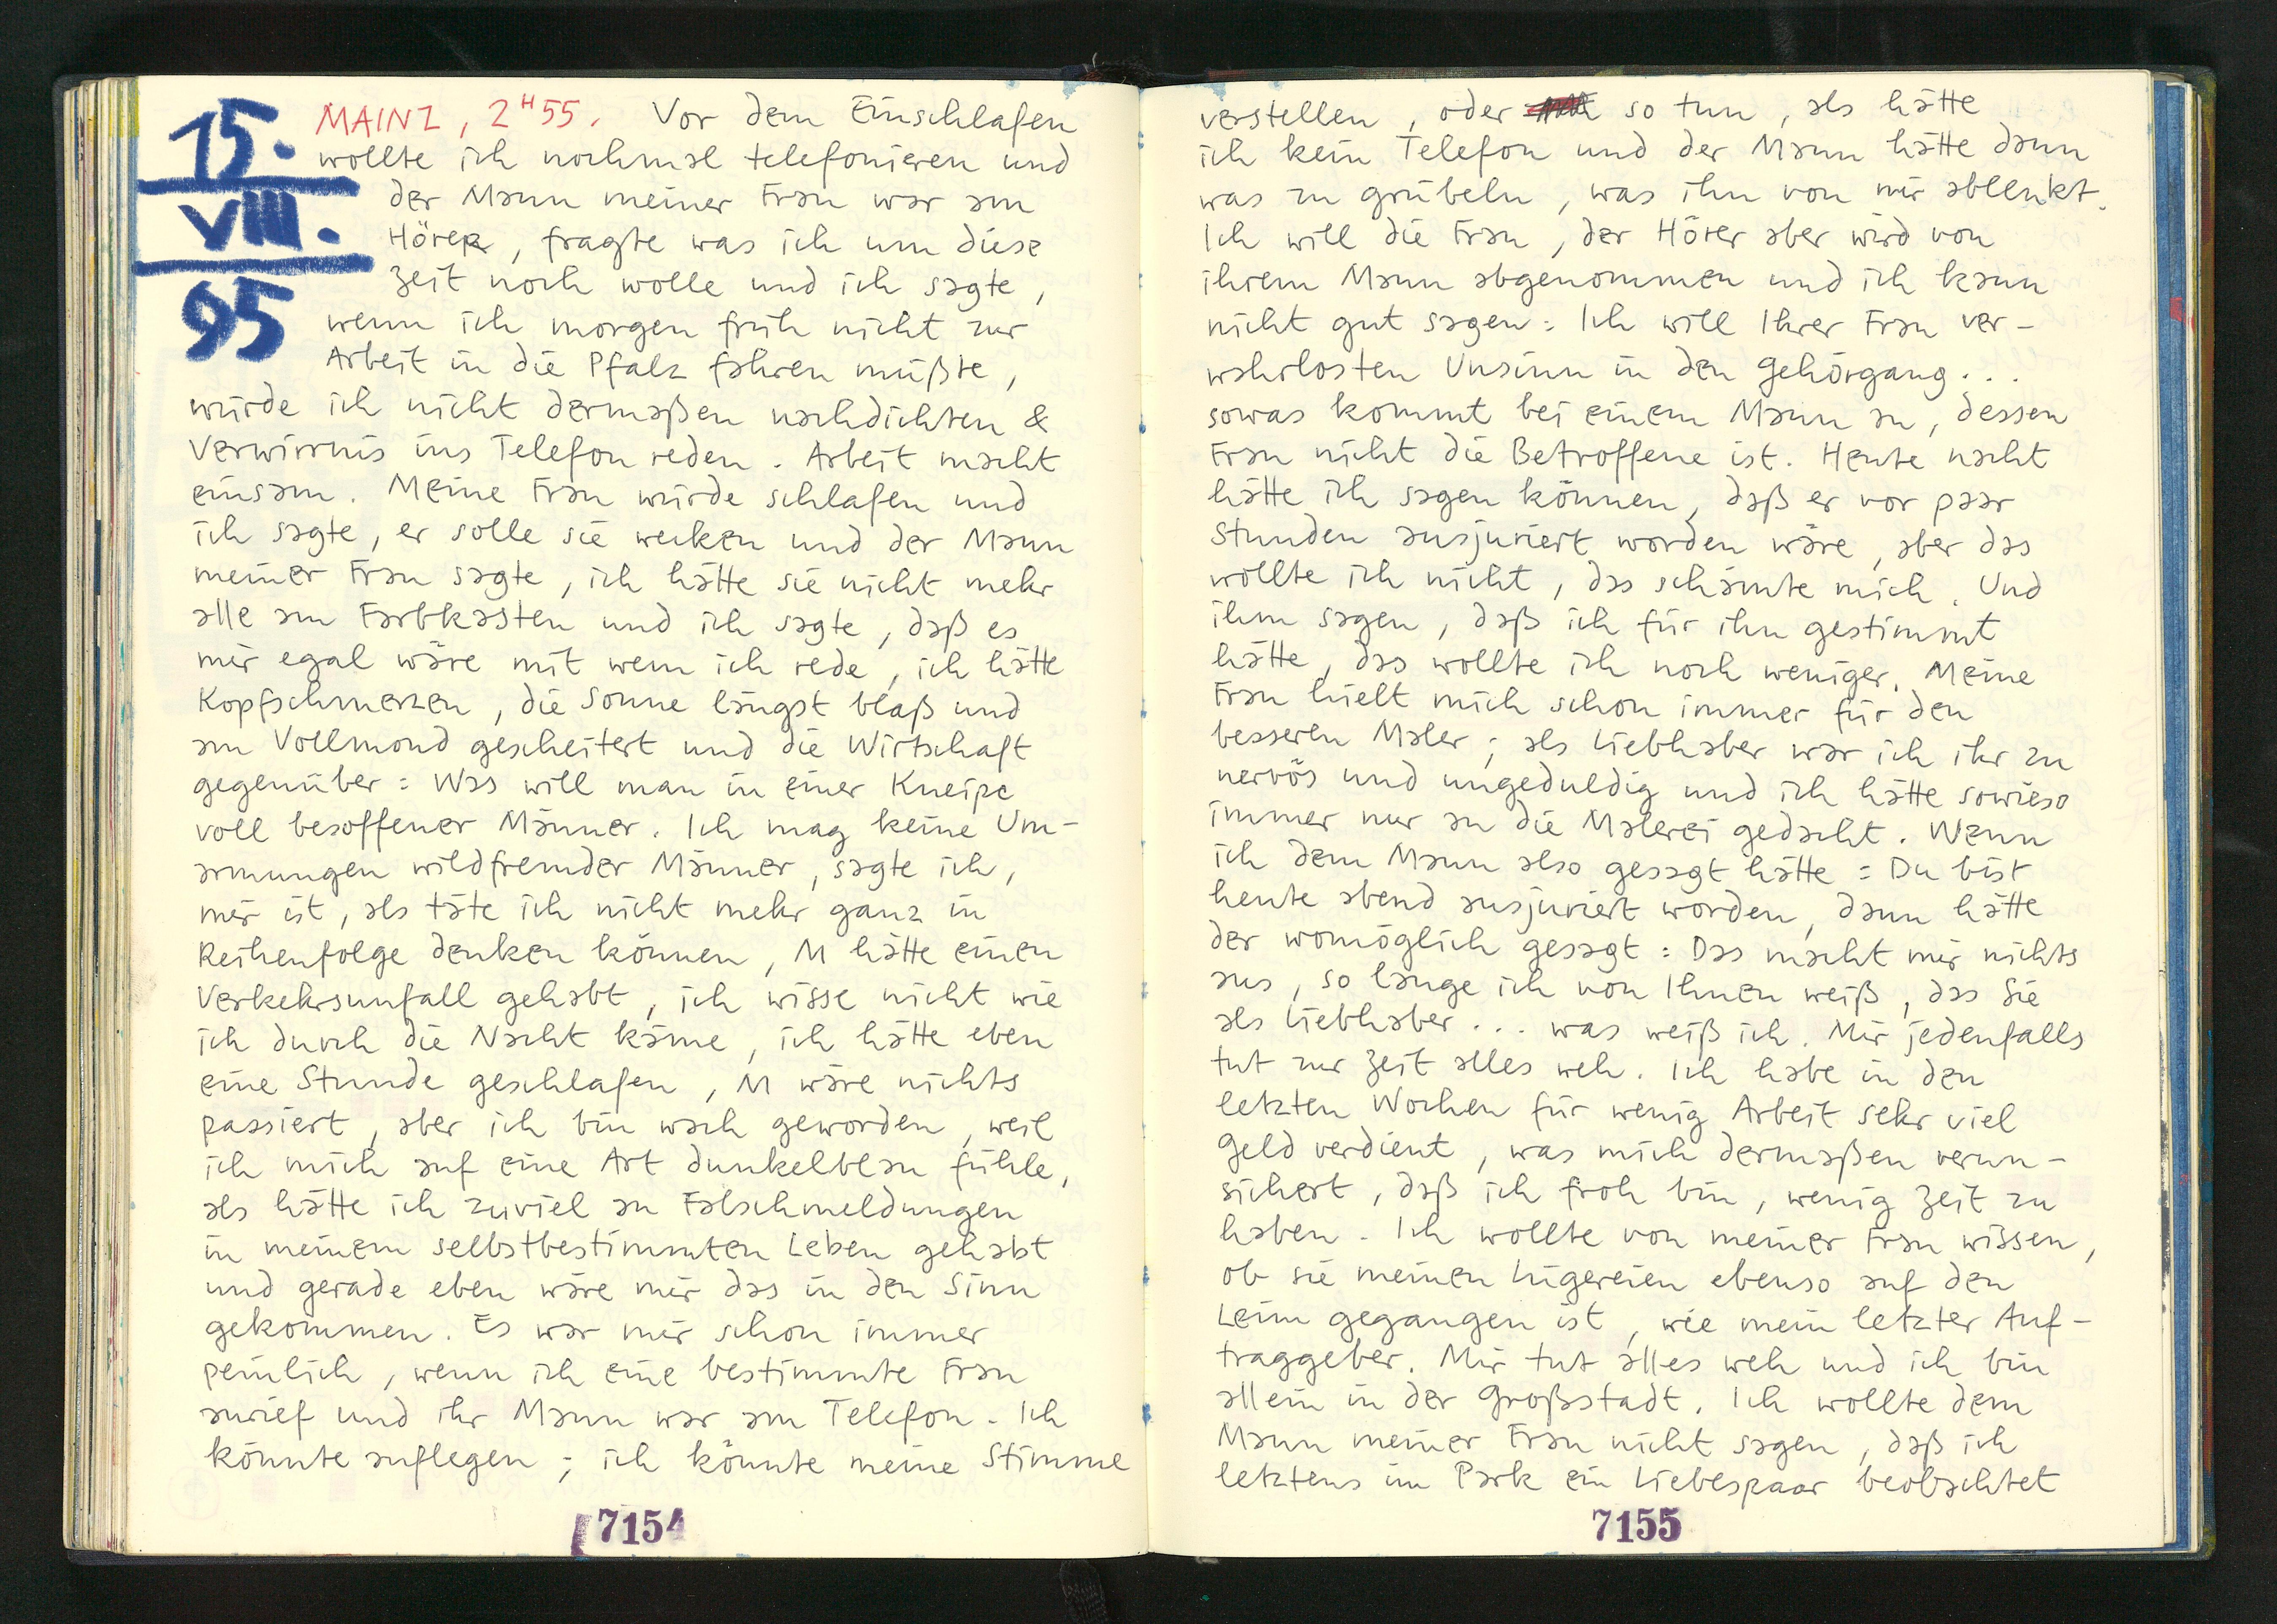 15.
VIII.
95
MAINZ, 2H55. Vor dem Einschlafen
wollte ich nochmal telefonieren und
der Mann meiner Frau war am
Hörer, fragte was ich um diese
Zeit noch wolle und ich sagte,
wenn ich morgen früh nicht zur
Arbeit in die Pfalz fahren müßte,
würde ich nicht dermaßen nachdichten &
Verwirrnis ins Telefon reden. Arbeit macht
einsam. Meine Frau würde schlafen und
ich sagte, er solle sie wecken und der Mann
meiner Frau sagte, ich hätte sie nicht mehr
alle am Farbkasten und ich sagte, daß es
mir egal wäre mit wem ich rede, ich hätte
Kopfschmerzen, die Sonne längst blaß und
am Vollmond gescheitert und die Wirtschaft
gegenüber: Was will man in einer Kneipe
voll besoffener Männer. Ich mag keine Um-
armungen wildfremder Männer, sagte ich,
mir ist, als täte ich nicht mehr ganz in
Reihenfolge denken können, M hätte einen
Verkehrsunfall gehabt, ich wisse nicht wie
ich durch die Nacht käme, ich hätte eben
eine Stunde geschlafen, M wäre nichts
passiert, aber ich bin wach geworden, weil
ich mich auf eine Art dunkelblau fühle,
als hätte ich zuviel an Falschmeldungen
in meinem selbstbestimmten Leben gehabt
und gerade eben wäre mir das in den Sinn
gekommen. Es war mir schon immer
peinlich, wenn ich eine bestimmte Frau
anrief und ihr Mann war am Telefon. Ich
könnte auflegen; ich könnte meine Stimme
7154
verstellen, oder so tun, als hätte
ich kein Telefon und der Mann hätte dann
was zu grübeln, was ihn von mir ablenkt.
Ich will die Frau, der Hörer aber wird von
ihrem Mann abgenommen und ich kann
nicht gut sagen: Ich will Ihrer Frau ver-
wahrlosten Unsinn in den Gehörgang...
sowas kommt bei einem Mann an, dessen
Frau nicht die Betroffene ist. Heute nacht
hätte ich sagen können, daß er vor paar
Stunden ausjuriert worden wäre, aber das
wollte ich nicht, das schämte mich. Und
ihm sagen, daß ich für ihn gestimmt
hätte, das wollte ich noch weniger. Meine
Frau hielt mich schon immer für den
besseren Maler; als Liebhaber war ich ihr zu
nervös und ungeduldig und ich hätte sowieso
immer nur an die Malerei gedacht. Wenn
ich dem Mann also gesagt hätte: Du bist
heute abend ausjuriert worden, dann hätte
der womöglich gesagt: Das macht mir nichts
aus, so lange ich von Ihnen weiß, das Sie
als Liebhaber... was weiß ich. Mir jedenfalls
tut zur Zeit alles weh. Ich habe in den
letzten Wochen für wenig Arbeit sehr viel
Geld verdient, was mich dermaßen verun-
sichert, daß ich froh bin, wenig Zeit zu
haben. Ich wollte von meiner Frau wissen,
ob sie meinen Lügereien ebenso auf den
Leim gegangen ist, wie mein letzter Auf-
traggeber. Mir tut alles weh und ich bin
allein in der Großstadt. Ich wollte dem
Mann meiner Frau nicht sagen, daß ich
letztens im Park ein Liebespaar beobachtet
7155